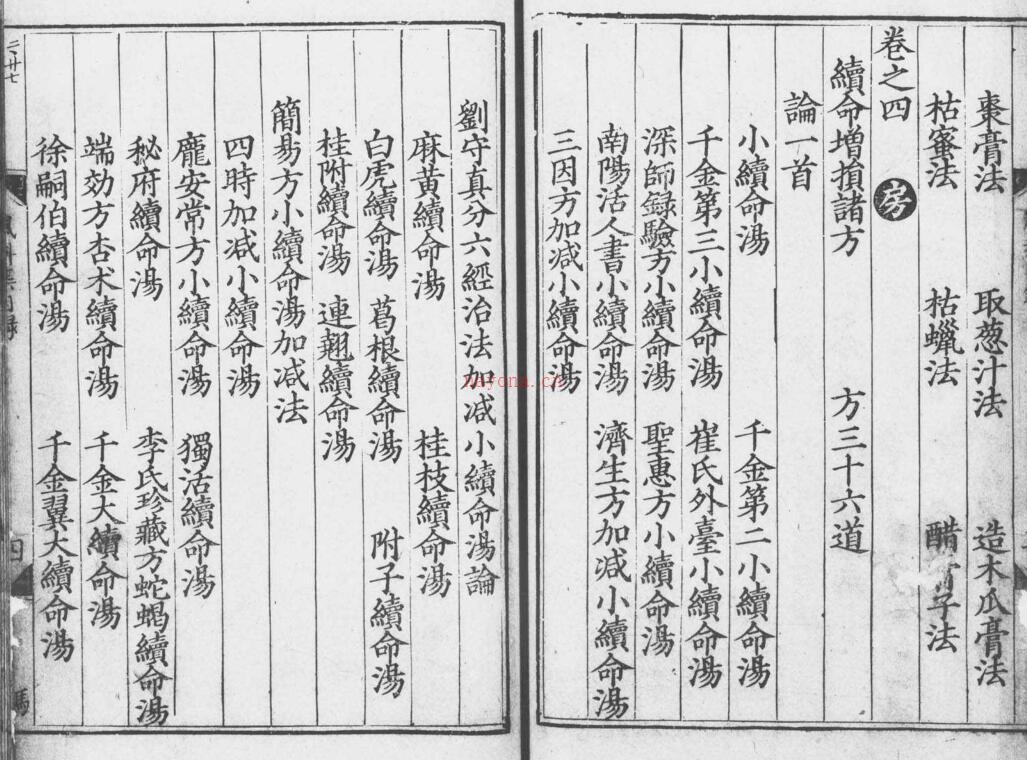 棗膏法　取葱汁法　造木瓜膏法
枯蜜法　枯蠟法　醋　子法
卷之四　房
續命增損諸方　方三十六道
論一首
小續命湯　千金第二小續命湯
千金第三小續命湯　崔氏外臺小續命湯
深師録驗方小續命湯　聖惠方小續命湯
南陽活人書小續命湯　濟生方加减小續命湯
三因方加减小續命湯
劉守真分六經治法加减小續命湯論
麻黄續命湯　桂枝續命湯
白虎續命湯　葛根續命湯　附子續命湯
桂附續命湯　連翹續命湯
簡易方小續命湯加减法
四時加减小續命湯
龐安常方小續命湯　獨活續命湯
秘府續命湯　李氏珍藏方蛇蝎續命湯
端効方杏术續命湯　千金大續命湯
徐嗣伯續命湯　千金翼大續命湯
二廿七
四
馮
nayona.cn